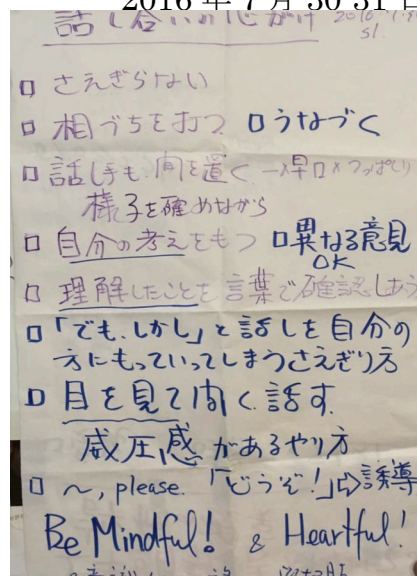 2016年7月30 31日
話し合いの心がけ 2016
さえぎらない
相づちを打つ □うなづく
□話し手も、間を置く→×早口×つっぱしり
様子を確めながら
□自分の考えをもつ □異なる意見
OK
□理解したことを言葉で確認しあう
□「でも、しかし」と話しを自分の
方にもっていってしまうさえぎり方
□目を見て聞く、話す。
威圧感があるやり方
□～, please. 「どうぞ!」⇨誘導
Be Mindful! & Heartful!